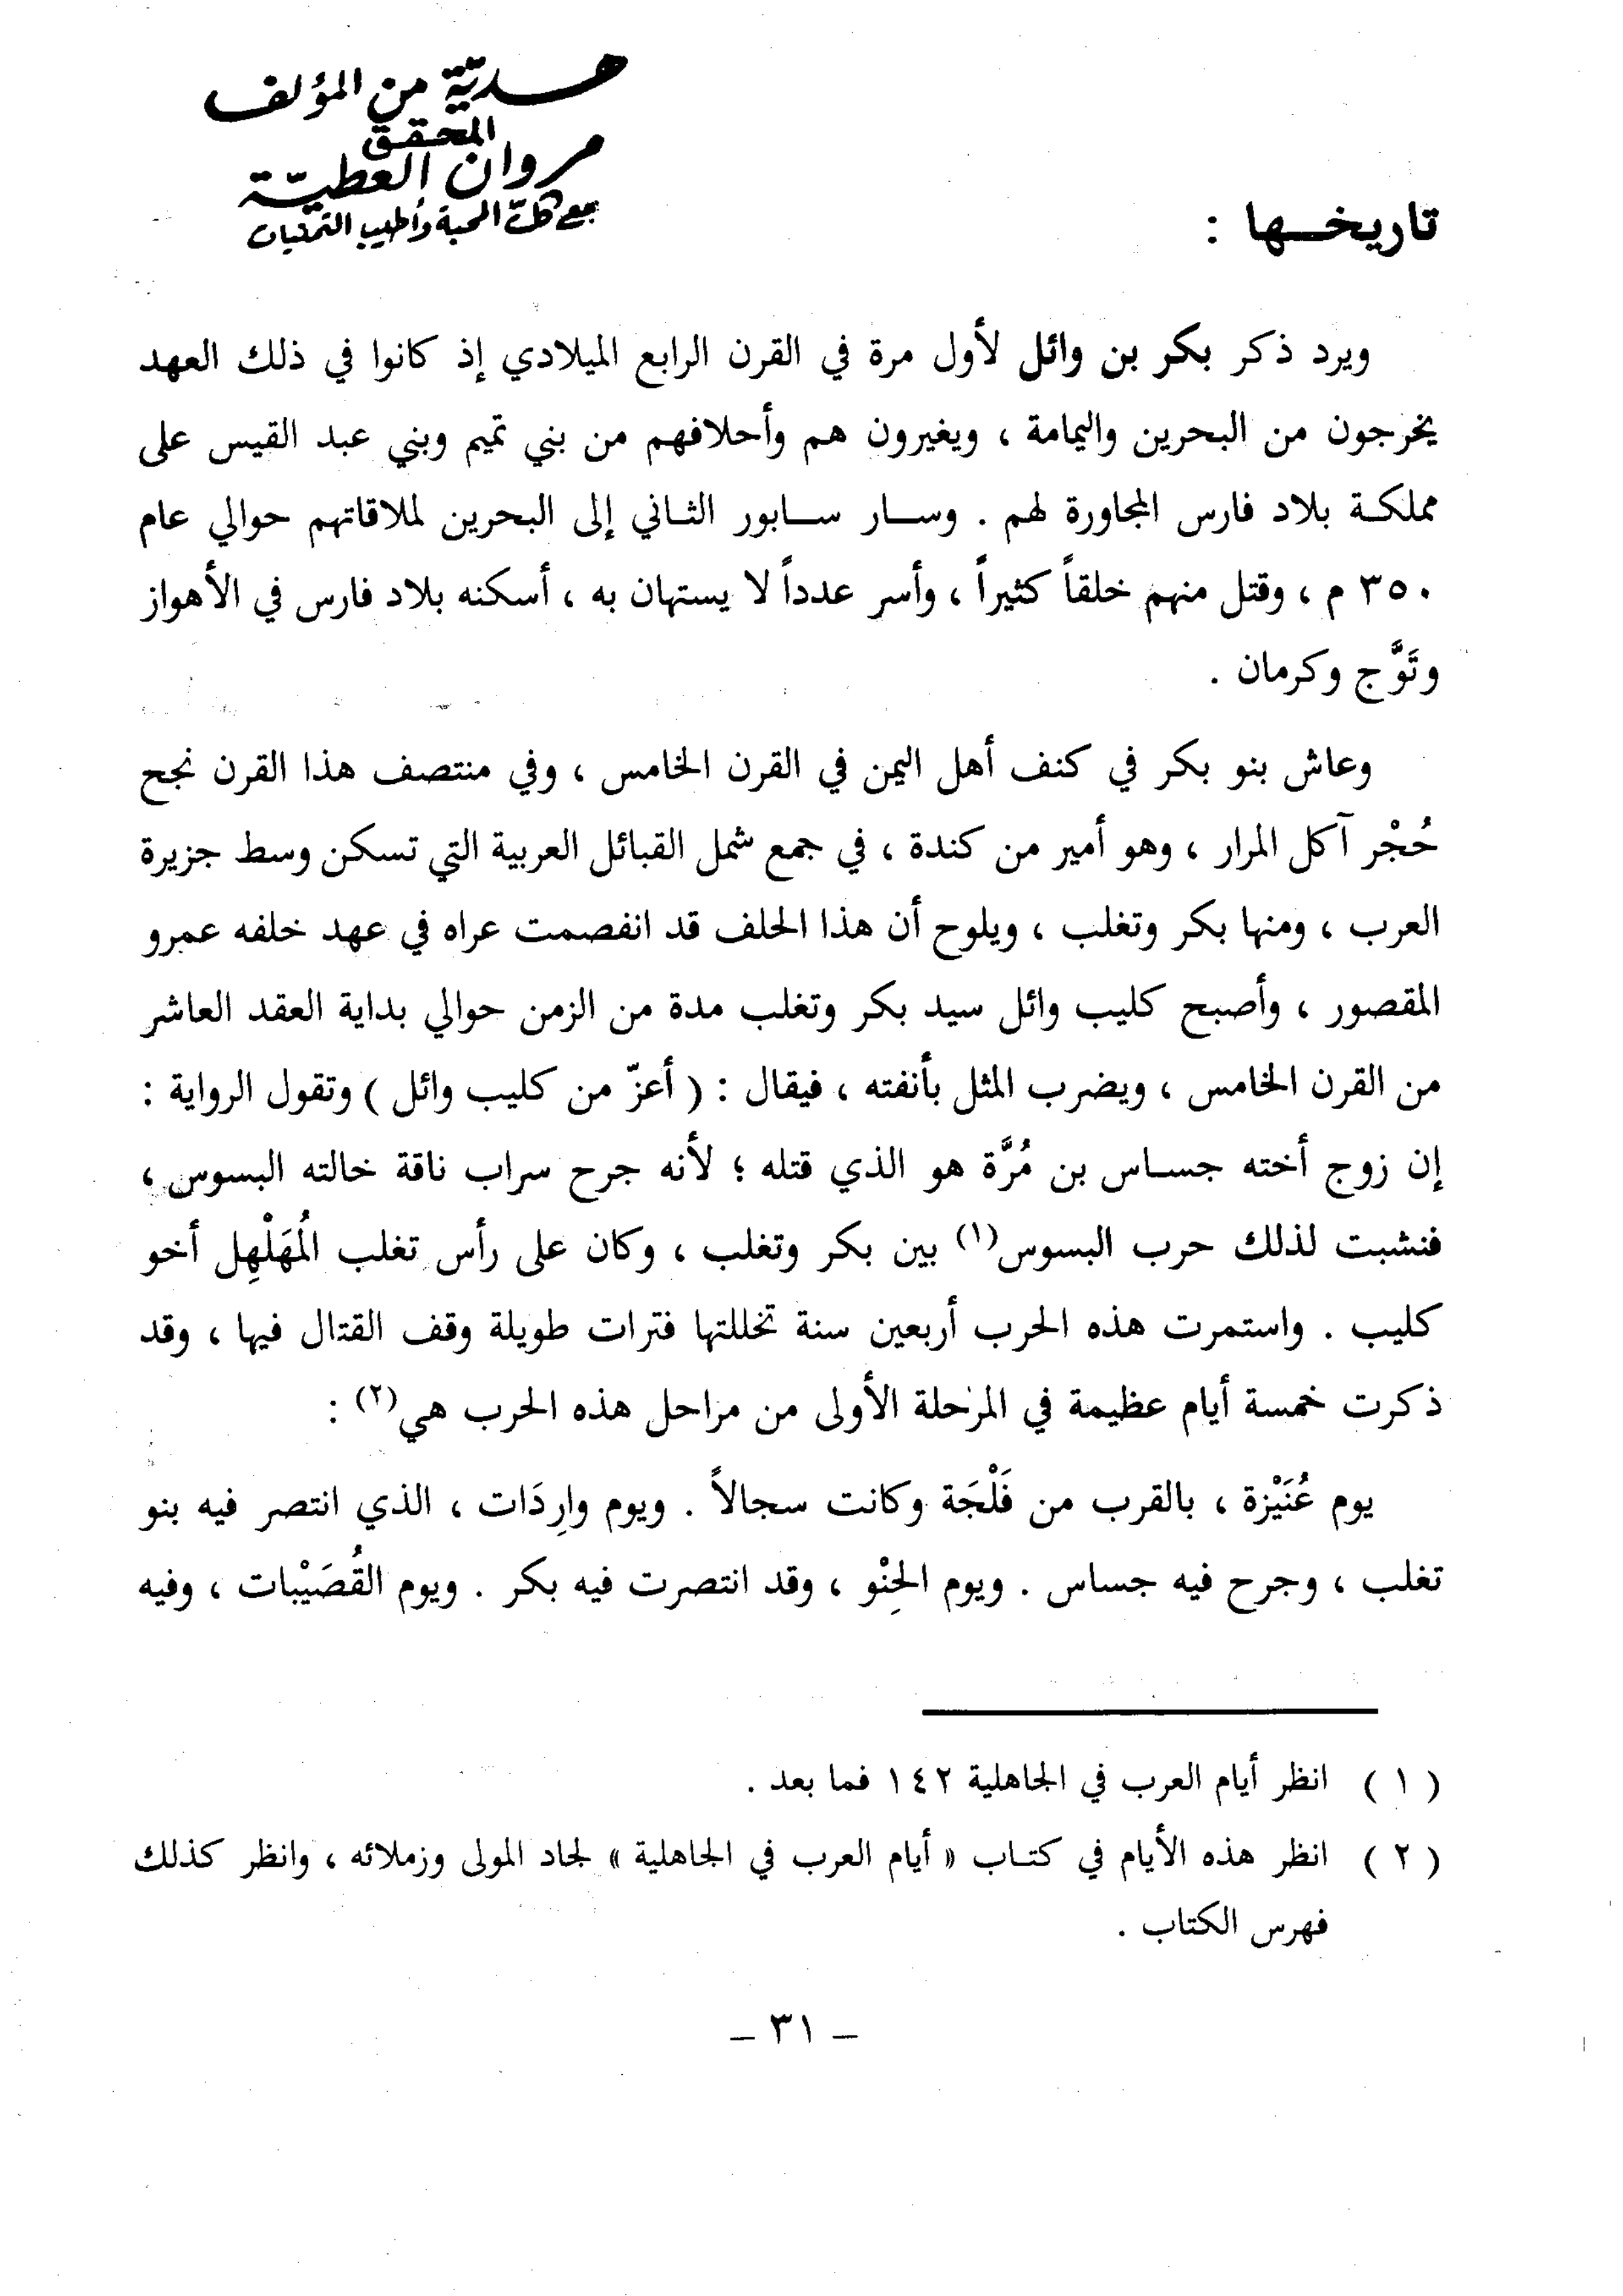 هديّة من المؤلف
المحقق
مروان العطيّة
مع كلّ المحبة وأطيب التمنيات
تاريخـها :
ويرد ذكر بكر بن وائل لأول مرة في القرن الرابع الميلادي إذ كانوا في ذلك العهد
يخرجون من البحرين واليمامة ، ويغيرون هم وأحلافهم من بني تميم وبني عبد القيس على
مملكة بلاد فارس المجاورة لهم . وسار سابور الثاني إلى البحرين لملاقاتهم حوالي عام
٣٥٠ م ، وقتل منهم خلقاً كثيراً ، وأسر عدداً لا يستهان به ، أسكنه بلاد فارس في الأهواز
وتَوَّج وكرمان .
وعاش بنو بكر في كنف أهل اليمن في القرن الخامس ، وفي منتصف هذا القرن نجح
حُجْر آكل المرار ، وهو أمير من كندة ، في جمع شمل القبائل العربية التي تسكن وسط جزيرة
العرب ، ومنها بكر وتغلب ، ويلوح أن هذا الحلف قد انفصمت عراه في عهد خلفه عمرو
المقصور ، وأصبح كليب وائل سيد بكر وتغلب مدة من الزمن حوالي بداية العقد العاشر
من القرن الخامس ، ويضرب المثل بأنفته ، فيقال : ( أعزّ من كليب وائل ) وتقول الرواية :
إن زوج أخته جساس بن مُرَّة هو الذي قتله ؛ لأنه جرح سراب ناقة خالته البسوس ،
فنشبت لذلك حرب البسوس(١) بين بكر وتغلب ، وكان على رأس تغلب المُهَلْهِل أخو
كليب . واستمرت هذه الحرب أربعين سنة تخللتها فترات طويلة وقف القتال فيها ، وقد
ذكرت خمسة أيام عظيمة في المرحلة الأولى من مراحل هذه الحرب هي(٢) :
يوم عُنَيْزة ، بالقرب من فَلْجَة وكانت سجالاً . ويوم وارِدَات ، الذي انتصر فيه بنو
تغلب ، وجرح فيه جساس . ويوم الحِنْو ، وقد انتصرت فيه بكر . ويوم القُصَيْبات ، وفيه
( ١ ) انظر أيام العرب في الجاهلية ١٤٢ فما بعد .
( ٢ ) انظر هذه الأيام في كتاب « أيام العرب في الجاهلية » لجاد المولى وزملائه ، وانظر كذلك
فهرس الكتاب .
– ٣١ –